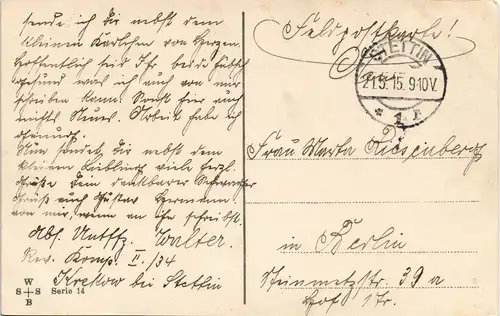 sende ich Dir nebst dem
kleinen Karlchen von Herzen.
Hoffentlich seid Ihr beide hübsch
gesund was ich auch von mir
schreiben kann. Sonst hier auch
nichts Neues. Arbeit habe ich
genug.
Nun sendet Dir nebst dem
kleinen Liebling viele herzl.
Grüße Dein dankbarer Schwager
Grüß auch Gustav Hermann
von mir, wenn an ihn schreibst.
Abs. Untffz. Walter.
Rev. Komp. II./34
Krekow bei Stettin
W S S B
Serie 14
Feldpostkarte!
STETTIN
21.5.15. 9-10V.
* 1 r
Frau Marta Riesenberg
in Berlin
Steinmetzstr. 39a
Hof 1Tr.